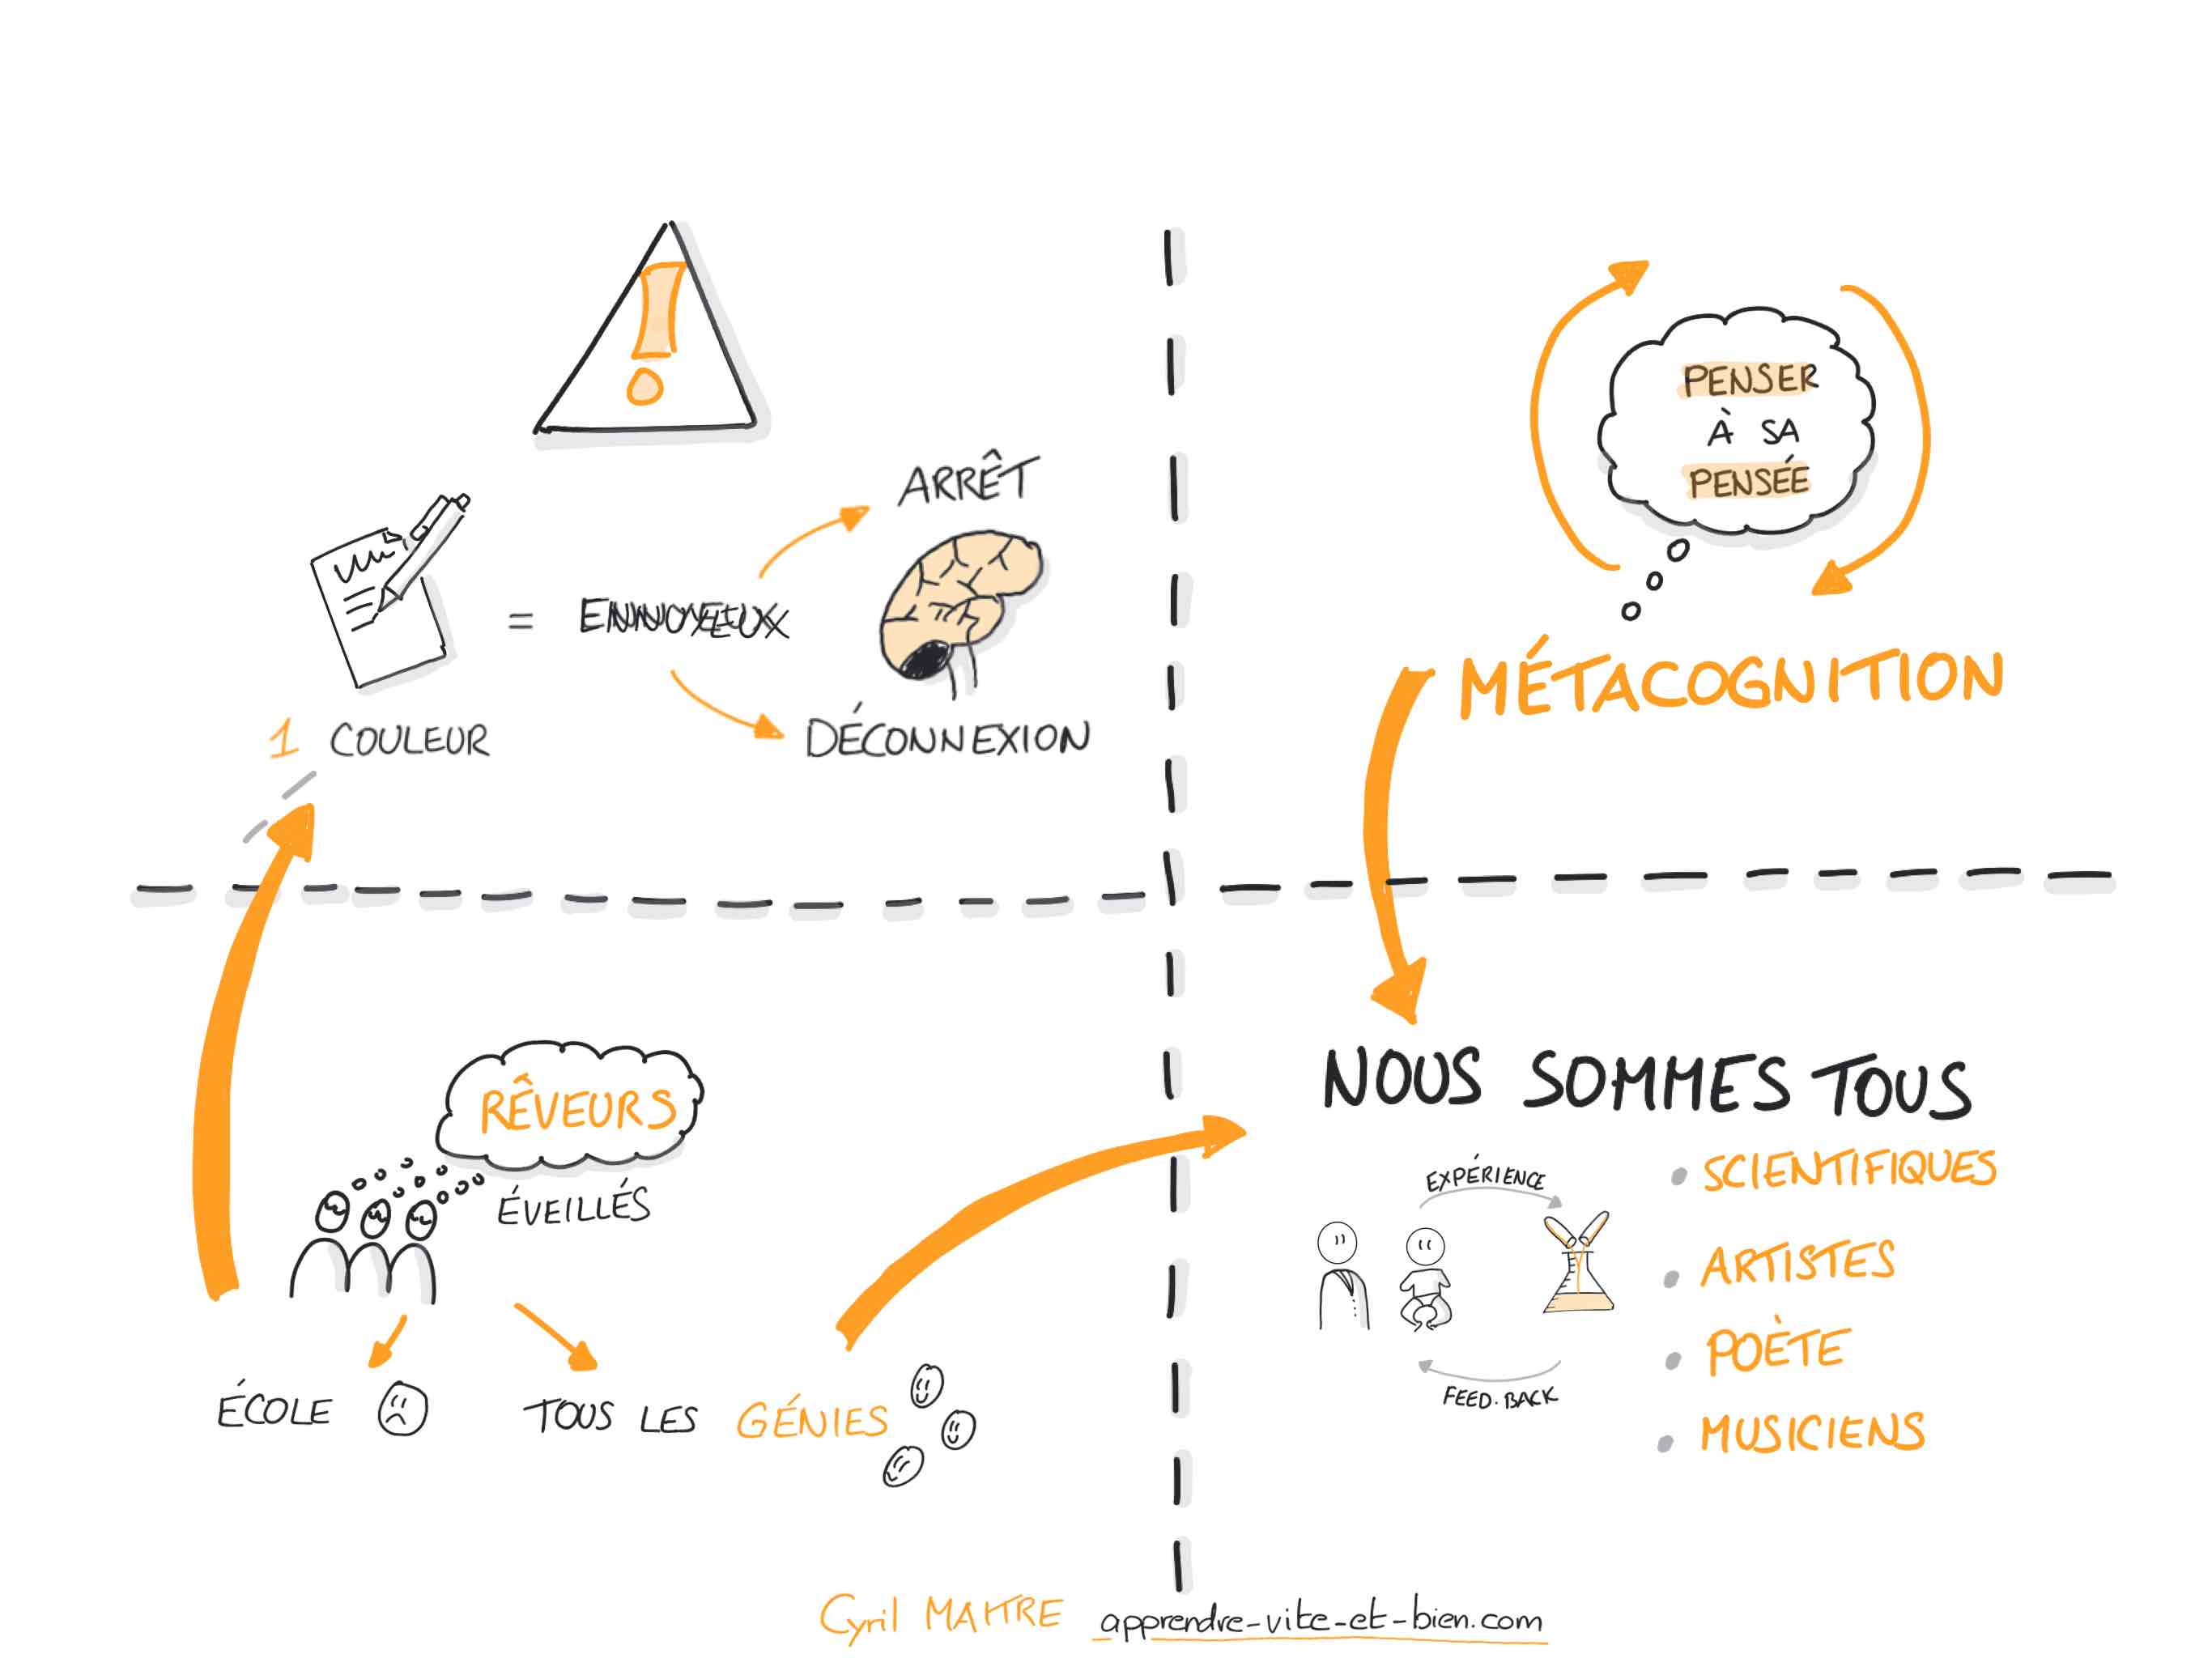 !
ARRÊT
= ENNUYEUX
1 COULEUR
DÉCONNEXION
PENSER
À SA
PENSÉE
MÉTACOGNITION
RÊVEURS
ÉVEILLÉS
ÉCOLE
TOUS LES GÉNIES
NOUS SOMMES TOUS
EXPÉRIENCE
FEED.BACK
• SCIENTIFIQUES
• ARTISTES
• POÈTE
• MUSICIENS
Cyril MAITRE apprendre-vite-et-bien.com